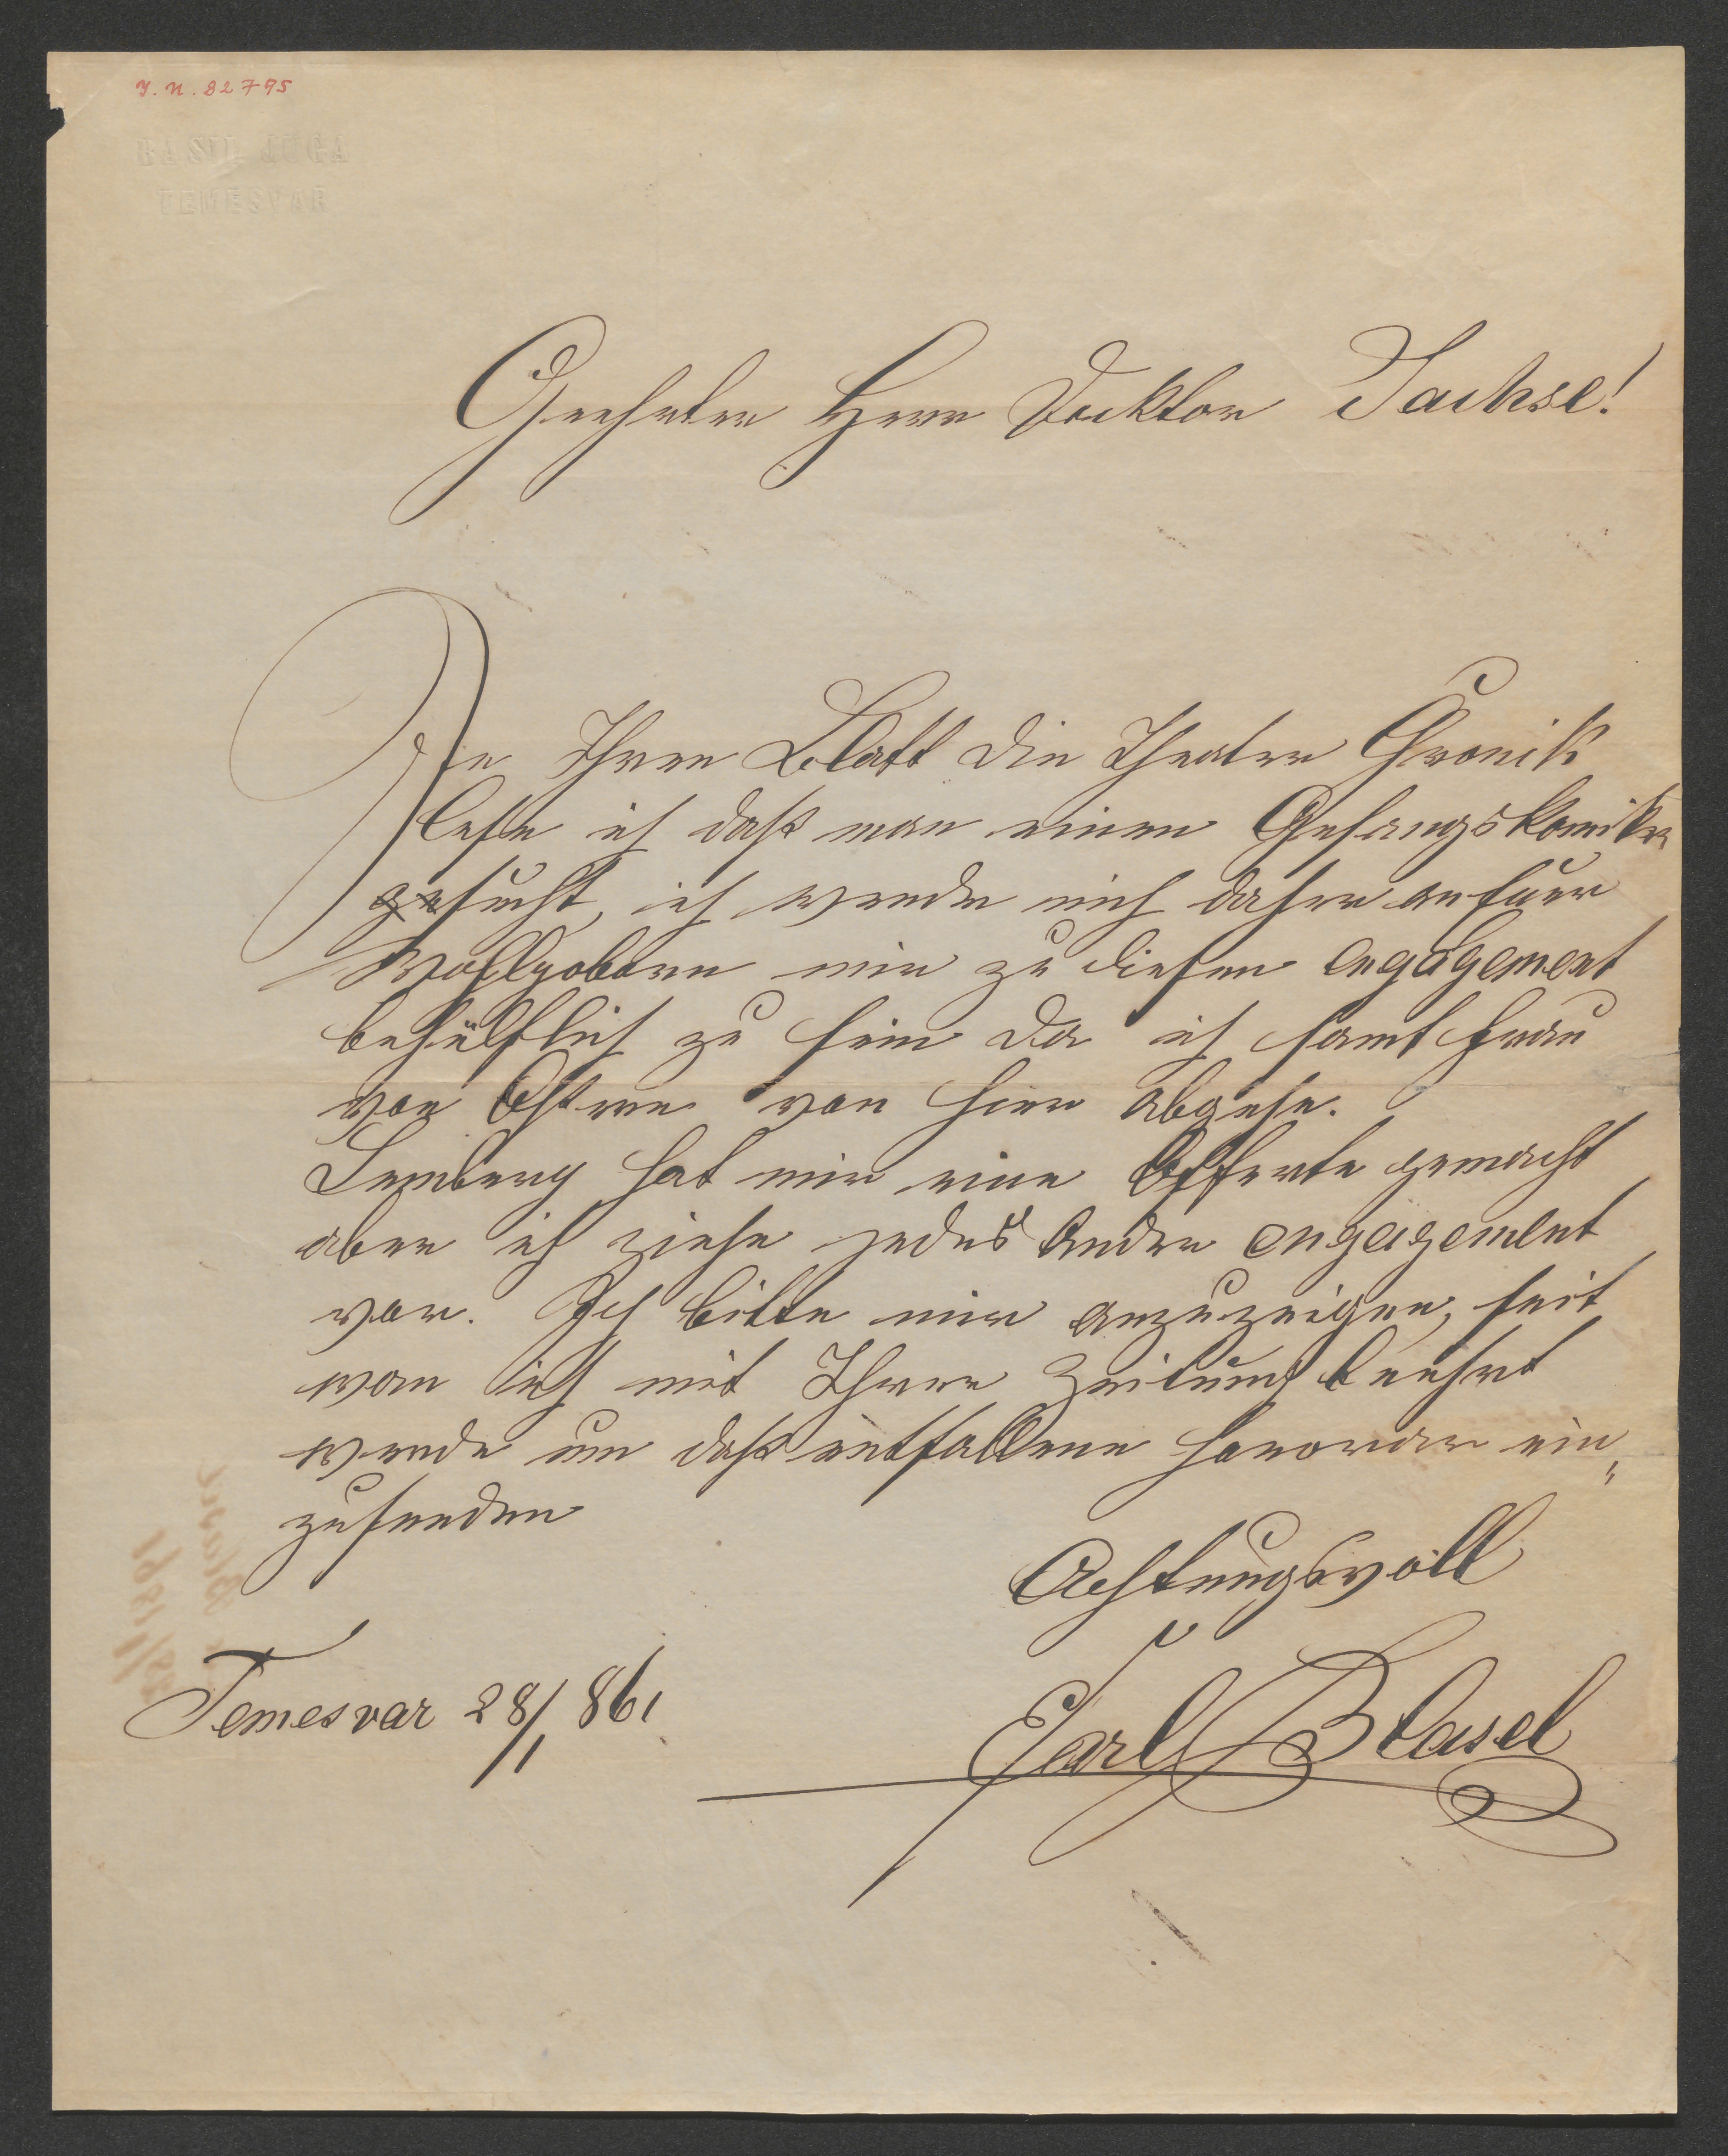 J. N. 82795
BASIL JUGA
TEMESVAR
Geehrter Herr Docktor Sachse!
In Ihren Blatt die Theater Chronik
lese ich daß man einen Gesangskomiker
gesucht, ich wende mich daher an Euer
Wohlgeboren mir zu diesen engagement
behülflich zu sein da ich samt Frau
vor Ostern von hier abgehe.
Lemberg hat mir eine Offerte gemacht
aber ich ziehe jedes Andre engagement
vor. Ich bitte mir anzuzeigen, seit
wan ich mit Ihrer Zeitung beehrt
werde um daß entfallene Honorar ein„
zusenden
Achtungsvoll
Temesvar 28/1 861
Carl Blasel